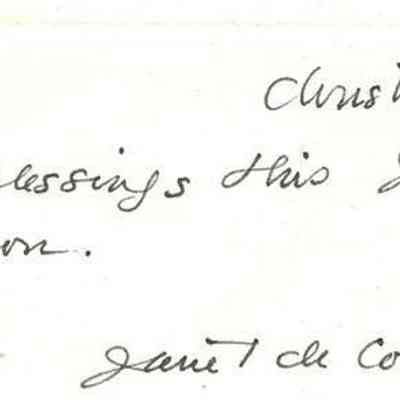 Christ
lessings this
on.
Janet de Co